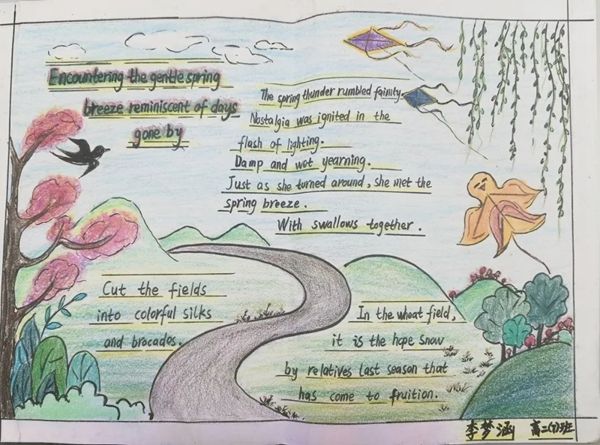 Encountering the gentle spring
breeze reminiscent of days
gone by
The spring thunder rumbled fainity.
Nostalgia was ignited in the
flash of lighting.
Damp and wot yearning.
Just as she turned around, she met the
spring breeze.
With swallows together.
Cut the fields
into colorful silks
and brocados.
In the wheat field,
it is the hope snow
by relatives last season that
has come to fruition.
李梦涵 高二(7)班